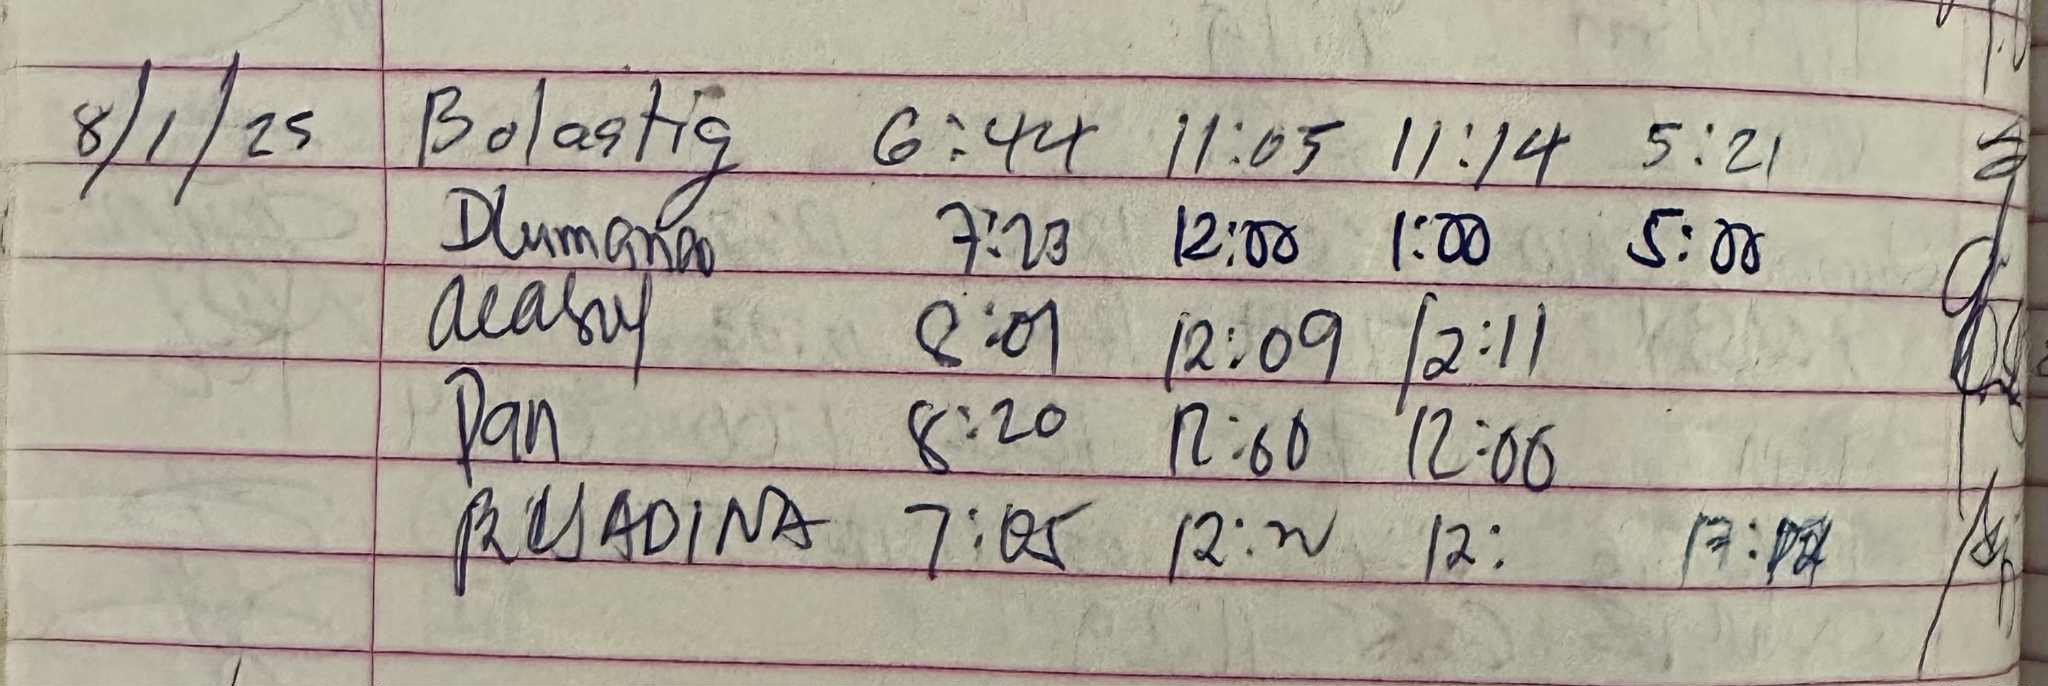 8/1/25 Bolastig 6:44 11:05 11:14 5:21
Dlumanao 7:23 12:00 1:00 5:00
8:01 12:09 12:11
Dan 8:20 12:00 12:00
7:05 12: 12: 17: